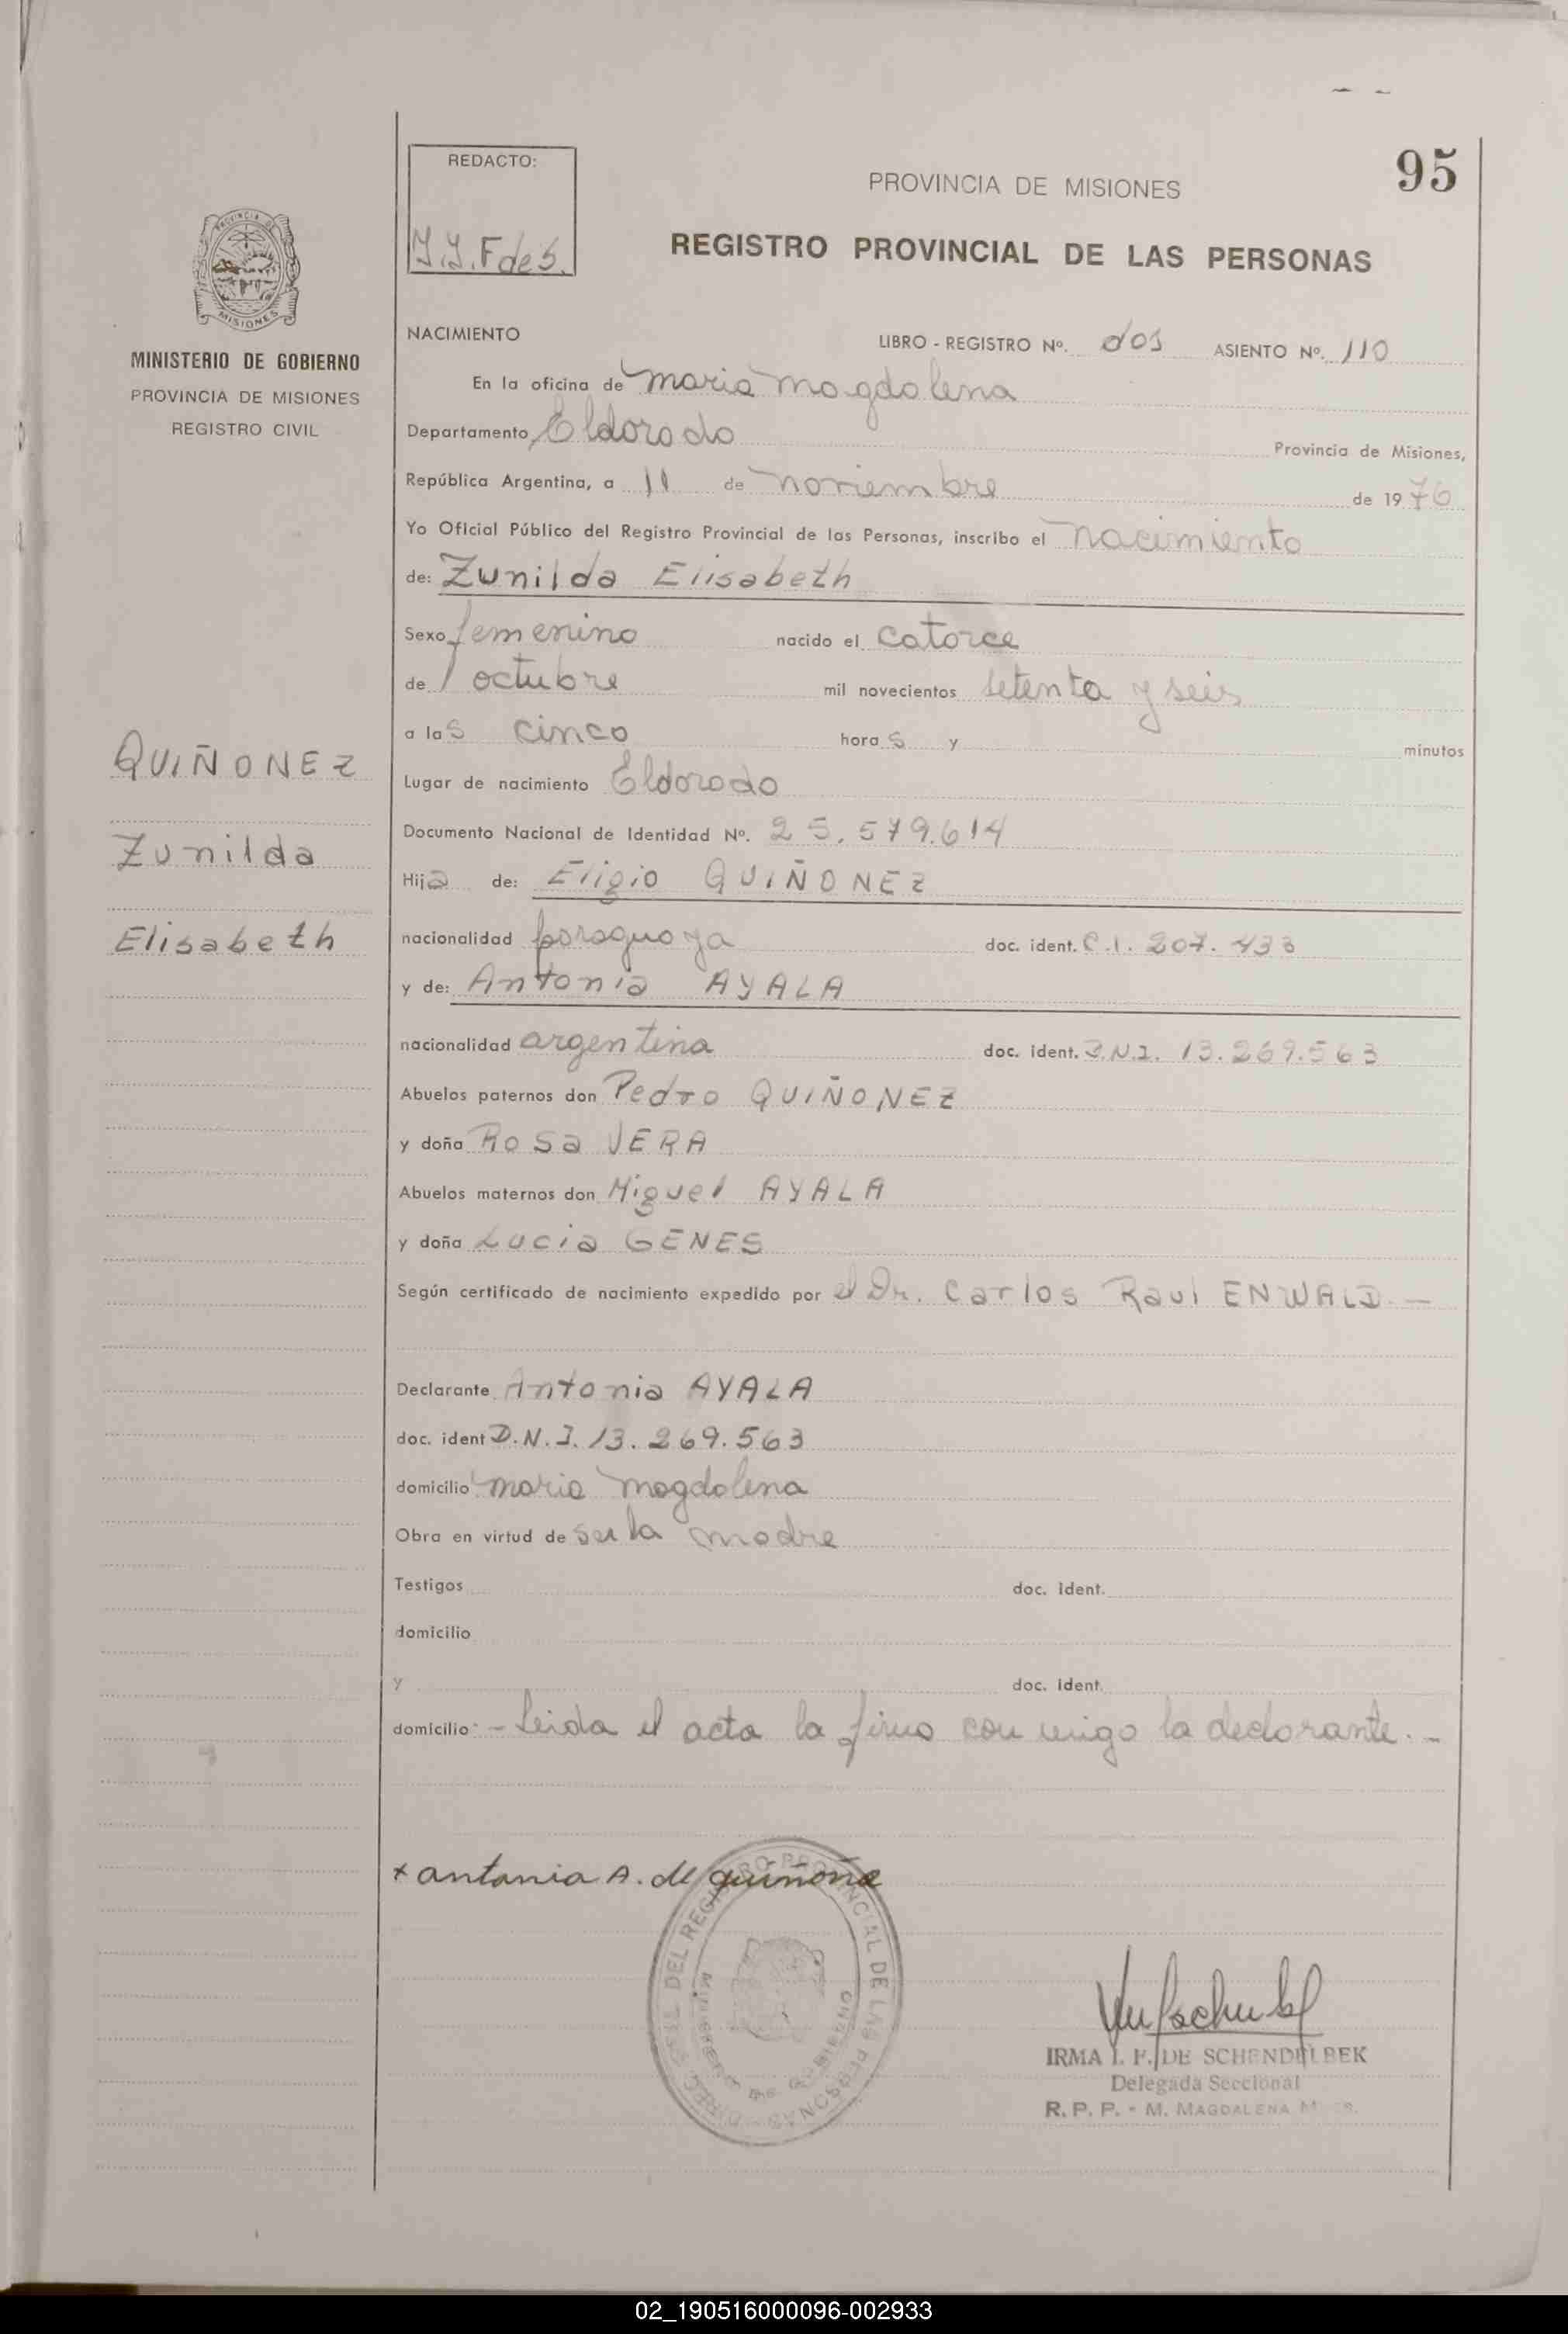 95
REDACTO:
PROVINCIA DE MISIONES
REGISTRO PROVINCIAL DE LAS PERSONAS
PROVINCIA DE MISIONES
MINISTERIO DE GOBIERNO
PROVINCIA DE MISIONES
REGISTRO CIVIL
QUIÑONEZ
Zunilda
Elisabeth
NACIMIENTO LIBRO - REGISTRO Nº. dos ASIENTO Nº. 110
En la oficina de Maria Magdalena
Departamento Eldorado Provincia de Misiones,
República Argentina, a 11 de noviembre de 1976
Yo Oficial Público del Registro Provincial de las Personas, inscribo el nacimiento
de: Zunilda Elisabeth
Sexo femenino nacido el catorce
de octubre mil novecientos setenta y seis
a las cinco horas y minutos
Lugar de nacimiento Eldorado
Documento Nacional de Identidad Nº. 25.579.614
Hija de: Eligio QUIÑONEZ
nacionalidad paraguaya doc. ident. C.I. 207.433
y de: Antonia AYALA
nacionalidad argentina doc. ident. D.N.I. 13.269.563
Abuelos paternos don Pedro QUIÑONEZ
y doña Rosa VERA
Abuelos maternos don Miguel AYALA
y doña Lucia GENES
Según certificado de nacimiento expedido por el Dr. Carlos Raul ENWALD.—
Declarante Antonia AYALA
doc. ident D.N.I. 13.269.563
domicilio Maria Magdalena
Obra en virtud de ser la madre
Testigos doc. ident.
domicilio
y doc. ident.
domicilio: - Leida el acta la firma con migo la declarante.-
x antonia A. de quiñone
DEL REGISTRO PROVINCIAL DE LAS PERSONAS
MINISTERIO DE GOBIERNO
IRMA I. F. DE SCHENDELBEK
Delegada Seccional
R. P. P. - M. MAGDALENA
02_190516000096-002933